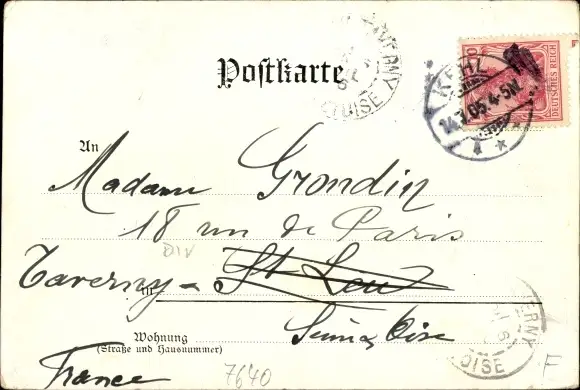 Postkarte
TAVERNY
OISE
DEUTSCHES REICH
KEHL
24.7.05.4-5N.
An
Madame Grondin
18 rue de Paris
Taverny St Leu
in
Seine & Oise
Wohnung
(Straße und Hausnummer)
France
7640
DIV
F
ERNY
OISE